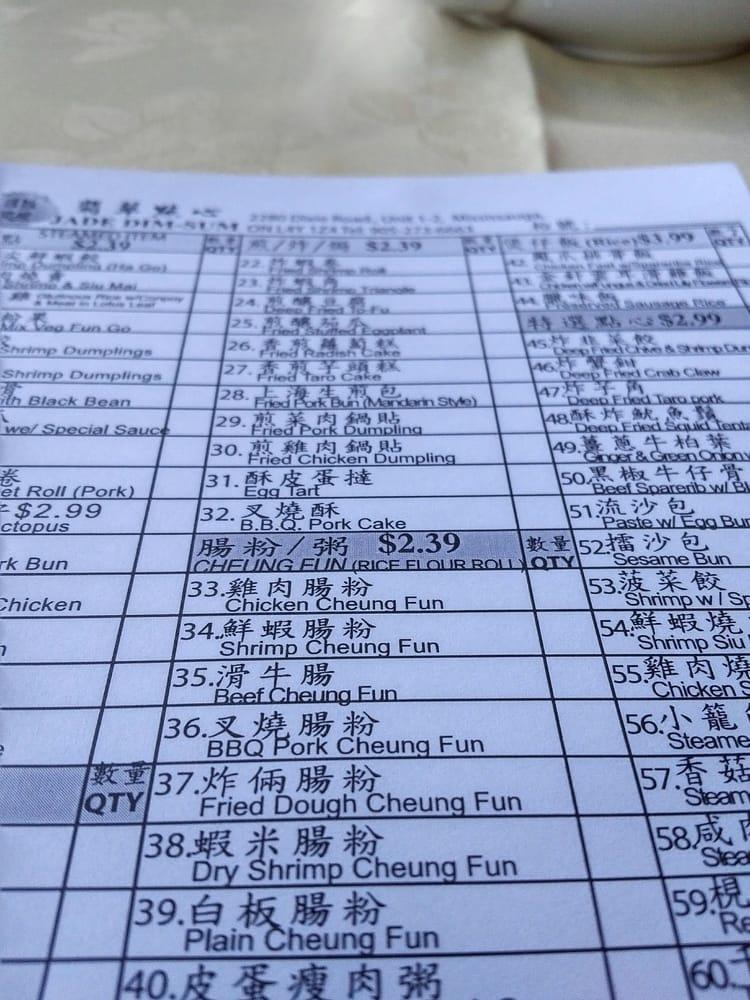 翡翠點心
JADE DIM-SUM
2280 Dixie Road, Unit 1-2, Mississauga,
ON L4Y 1Z4 Tel: 905-273-6663
STEAMED ITEM
$2.39
Dumpling (Ha Gao)
Shrimp & Siu Mai
Meat in Lotus Leaf
Mix Veg Fun Go
Shrimp Dumplings
Shrimp Dumplings
ith Black Bean
we/ Special Sauce
卷
et Roll (Pork)
$2.99
ctopus
rk Bun
Chicken
數量
QTY
$2.39
22.
Fried Shrimp Roll
23.
Fried Shrimp Triangle
24.
Deep Fried To-Fu
25.
Fried Stuffed Eggplant
26.香煎蘿蔔糕
Fried Radish Cake
27.香煎芋頭糕
Fried Taro Cake
28.上海生煎包
Fried Pork Bun (Mandarin Style)
29.煎菜肉鍋貼
Fried Pork Dumpling
30.煎雞肉鍋貼
Fried Chicken Dumpling
31.酥皮蛋撻
Egg Tart
32.叉燒酥
B.B.Q. Pork Cake
腸粉/粥 $2.39 數量
CHEUNG FUN (RICE FLOUR ROLL) QTY
33.雞肉腸粉
Chicken Cheung Fun
34.鮮蝦腸粉
Shrimp Cheung Fun
35.滑牛腸
Beef Cheung Fun
36.叉燒腸粉
BBQ Pork Cheung Fun
37.炸倆腸粉
Fried Dough Cheung Fun
38.蝦米腸粉
Dry Shrimp Cheung Fun
39.白板腸粉
Plain Cheung Fun
40.皮蛋瘦肉粥
煲仔飯 (Rice) $3.99
42.
43.
44.
Preserved Sausage Rice
特選點心 $2.99
45.炸韭菜餃
Deep Fried Chive & Shrimp Dum
46.
Deep Fried Crab Claw
47.炸芋角
Deep Fried Taro pork
48.酥炸魷魚鬚
Deep Fried Squid Tenta
49.薑蔥牛柏葉
Ginger & Green Onion w
50.黑椒牛仔骨
Beef Sparerib w/ Bl
51.流沙包
Paste w/ Egg Bun
52.擂沙包
Sesame Bun
53.菠菜餃
Shrimp w/ Sp
54.鮮蝦燒
Shrimp Siu
55.雞肉燒
Chicken S
56.小籠
Steame
57.香菇
Steam
58.咸肉
Stea
59.
Re
60.